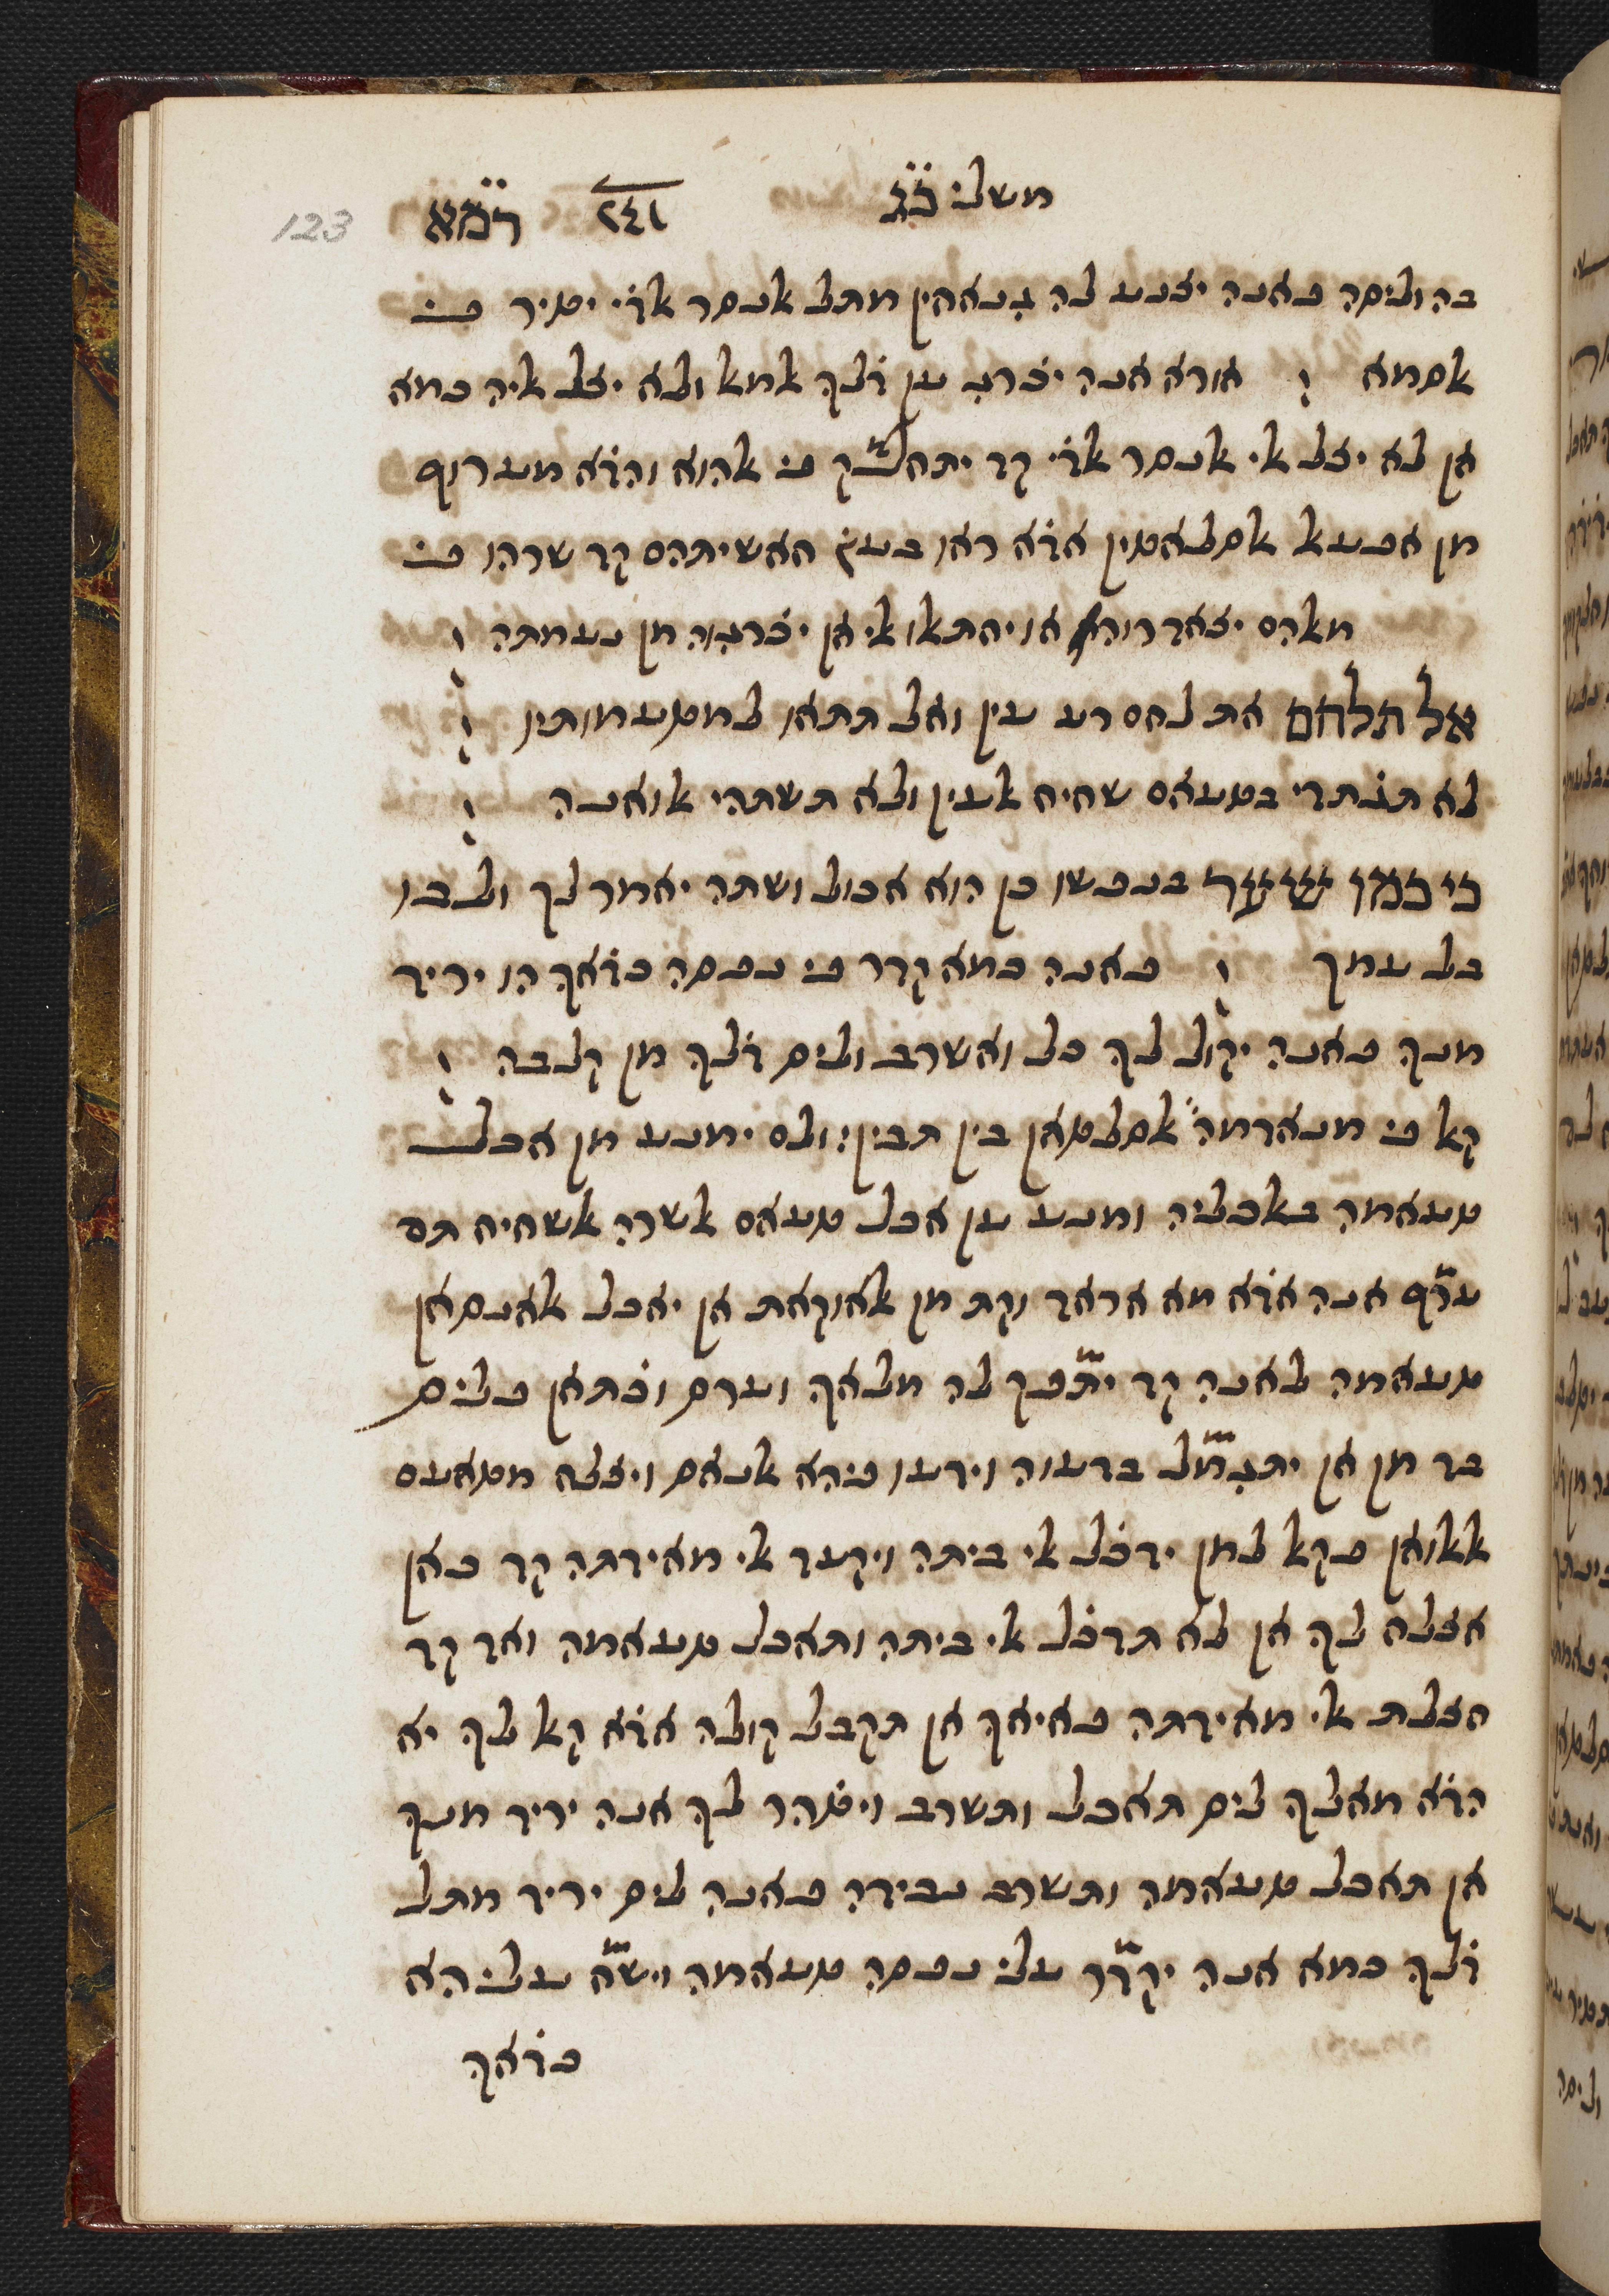 משלי כ̈ג̈ ٢٤١ רמ̈א 123
בה וליסה פאנה יצנע לה גׄנאחין מתל אלנסר אלדׄי יטיר פי
אלסמא : אורא אנה יכׄרגׄ ען דׄלך אלמאל ולא יצל אליה כמא
אן לא יצל אלי אלנסר אלדׄי קד יתחלّק פי אלהוא והדׄא מערוף
מן אפעאל אלסלאטין אדׄא ראו בעץׄ חאשיתהם קד שרהו פי
מאלהם יצאדרוהם או יחתאלו אלי אן יכׄרגׄוה מן נעמתה :
אל תלחם את לחם רע עין ואל תתאו למטעמותיו :
לא תגתדי בטעאם שחיח אלעין ולא תשתהי אלואנה :
כי כמו שער בנפשו כן הוא אכול ושתה יאמר לך ולבו
בל עמך : פאנה כמא קדר פי נפסה כדׄאך הו יריד
מנך פאנה יקול לך כל ואשרב וליס דׄלך מן קלבה :
קאל פי מנאדמה̈ אלסלטאן בין תבין: ולם ימנע מן אכל
טעאמה באלכליה ומנע ען אכל טעאם אלשרה אלשחיח תם
ערّף אנה אדׄא מא אראד וקת מן אלאוקאת אן יאכל אלאנסאן
טעאמה לאנה קד יתّפק לה מלאך וערס וכׄתאן פליס
בד מן אן יתגׄמّל בדעוה וידעו פיהא אלנאס ויצלח מטאעם
אלאלואן פקאל למן ידכׄל אלי ביתה ויקעד אלי מאידתה קד כאן
אצלח לך אן לא תדכׄל אלי ביתה ותאכל טעאמה ואד קד
חצלת אלי מאידתה פאיאך אן תקבל קולה אדׄא קאל לך יא
הדׄא מאלך ליס תאכל ותשרב ויטׄהר לך אנה יריד מנך
אן תאכל טעאמה ותשרב נבידה פאנה ליס יריד מתל
דׄלך כמא אנה יקדّר עלי נפסה טעאמה וישחّ עליהא
כדׄאך